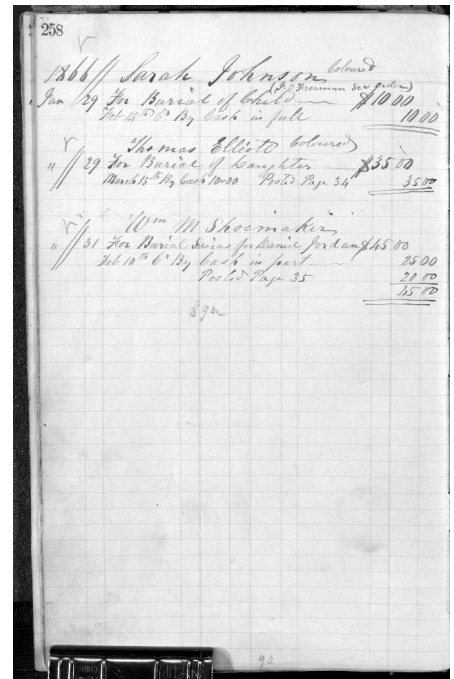 258
1866 // Sarah Johnson Coloured
Jan // 29 For Burial of Child $10.00
Feb 14th 6 By Cash in full 10.00
Thomas Elliott Coloured
" // 29 For Burial of Daughter $35.00
March 15th By Cash 10.00 Posted Page 34 35.00
Wm M. Shoemaker
" // 31 For Burial for Daniel Jordan $45.00
Feb 10th 6 By Cash in part 25.00
Posted Page 35 20.00
45.00
$90
90